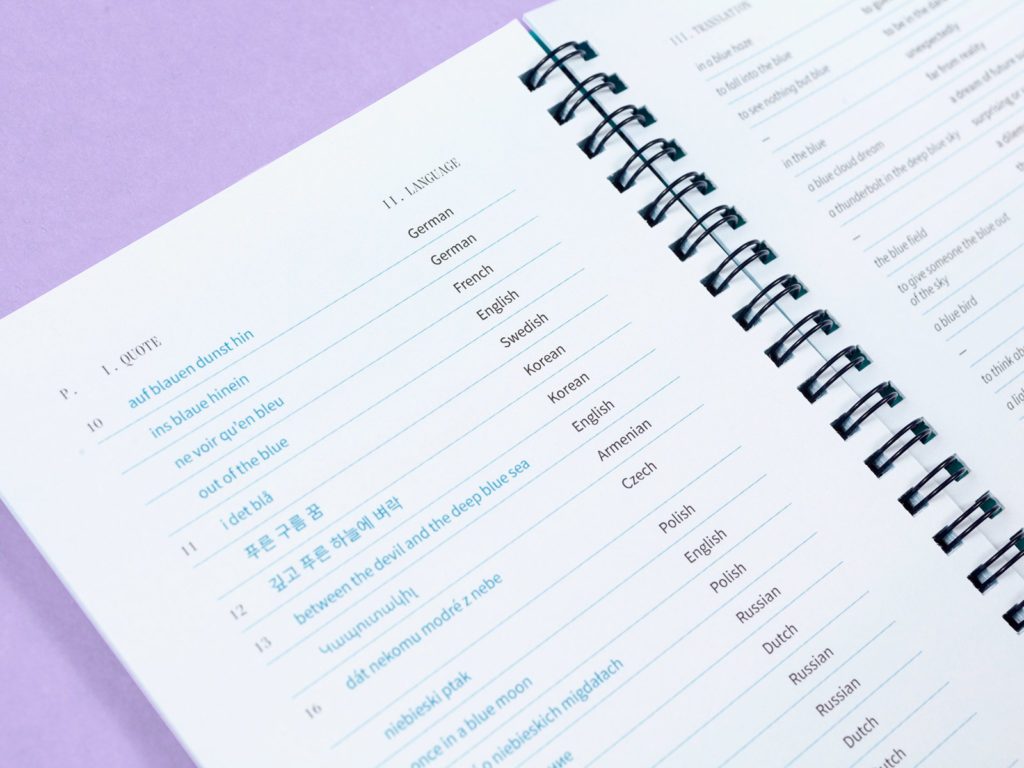 P. I. QUOTE II. LANGUAGE
10 auf blauen dunst hin German
ins blaue hinein German
ne voir qu'en bleu French
out of the blue English
11 i det blå Swedish
푸른 구름 꿈 Korean
12 깊고 푸른 하늘에 벼락 Korean
13 between the devil and the deep blue sea English
կապուտակիլ Armenian
16 dát nekomu modré z nebe Czech
niebieski ptak Polish
once in a blue moon English
o niebieskich migdałach Polish
Russian
Dutch
Russian
Russian
Dutch
III. TRANSLATION
in a blue haze
to fall into the blue to be in the
to see nothing but blue unexpectedly
– far from reality
in the blue a dream of future
a blue cloud dream surprising or
a thunderbolt in the deep blue sky
–
the blue field
to give someone the blue out
of the sky
a blue bird
–
to think